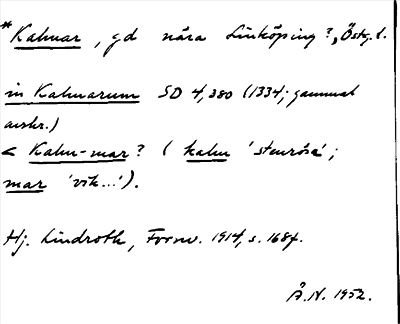 *Kalmar, gd nära Linköping?, Östg.l.
in Kalmarum SD 4,380 (1334; gammal
avskr.)
< Kalm-mar? (kalm 'stenröse';
mar 'vik...').
Hj. Lindroth, Fornv. 1914, s. 168f.
Å.N. 1952.